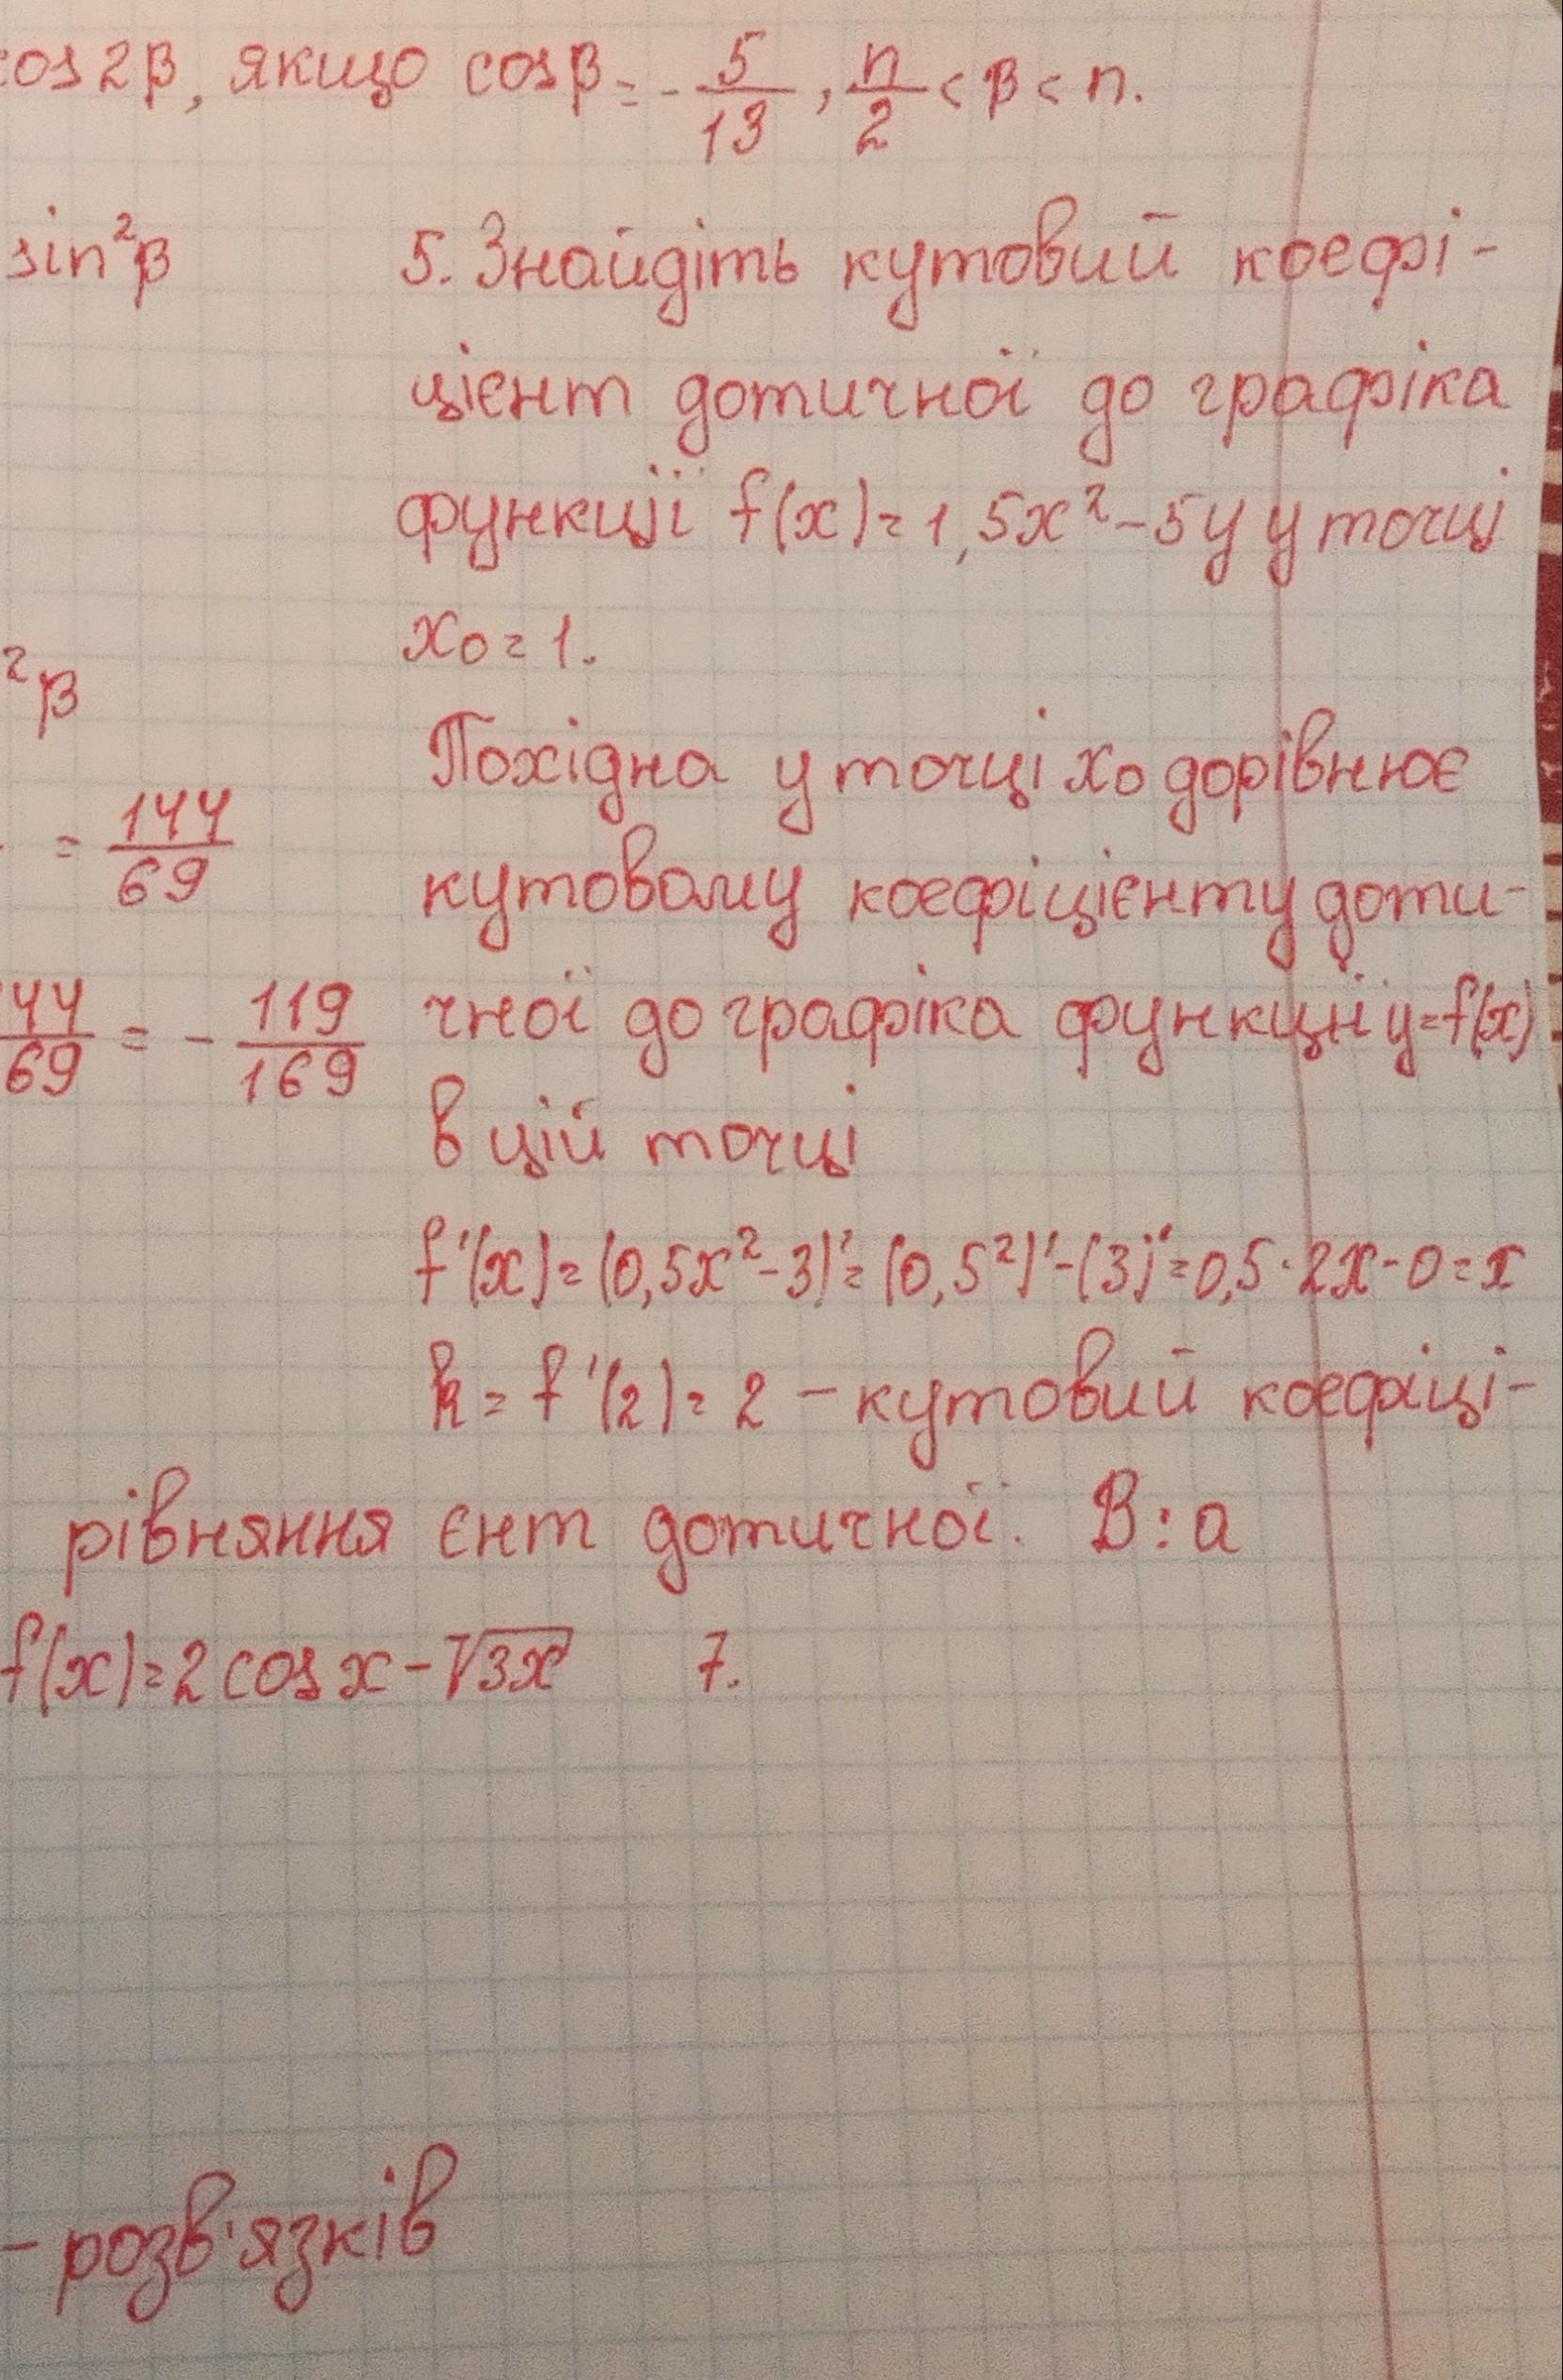 cos2β, якщо cosβ = -5/13, п/2 < β < п.
sin²β
5. Знайдіть кутовий коефі-
цієнт дотичної до графіка
функції f(x)=1,5x²-5y у точці
x₀=1.
²β
Похідна у точці x₀ дорівнює
= 144/69
кутовому коефіцієнту доти-
44/69 = -119/169
чної до графіка функції y=f(x)
в цій точці
f'(x)=(0,5x²-3)'=(0,5²)'-(3)'=0,5·2x-0=x
k=f'(2)=2 - кутовий коефіці-
рівняння
єнт дотичної. В:а
f(x)=2cosx-√3x
7.
- розв'язків